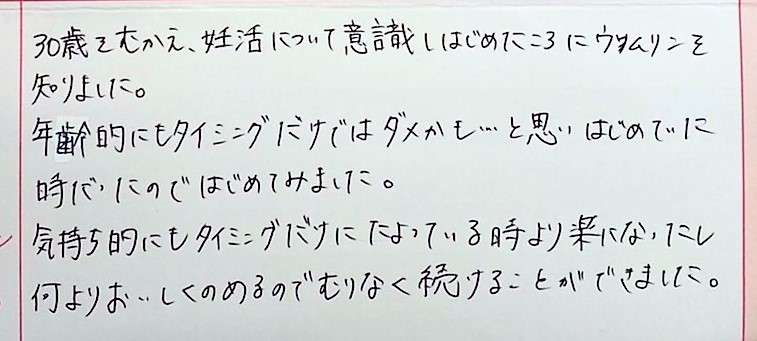 30歳をむかえ、妊活について意識しはじめたころにウムリンを
知りました。
年齢的にもタイミングだけではダメかも…と思いはじめていた
時だったのではじめてみました。
気持ち的にもタイミングだけにたよっている時より楽になったし
何よりおいしくのめるのでむりなく続けることができました。